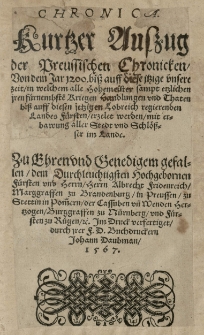 CHRONICA.
Kurtzer Außzug
der Preussischen Chronicken/
Von dem Jar 1200. biß auff diese itzige unsere
zeit/ in welchem alle Hohemeister sampt etzlichen
jren fürnembste Kriegen Handlungen und Thaten
biß auff diesen jetzigen Lobreich regierenden
Landes Fürsten/ erzelet werden/ mit er-
bawung aller Stedt und Schlös-
ser im Lande.
Zu Ehren und Genedigem gefal-
len/ dem Durchleuchtigsten Hochgebornen
Fürsten und Herrn/ Herrn Albrecht Friderich/
Marggraffen zu Brandenburg/ in Preussen/ zu
Stettin in Pomern/ der Cassuben un Wenden Her-
tzogen/ Burggraffen zu Nürmberg/ und Für-
sten zu Rügen/ ꝛc. Im Druck verfertiget/
durch jrer F. D. Buchdruckern
Johann Daubman/
1567.